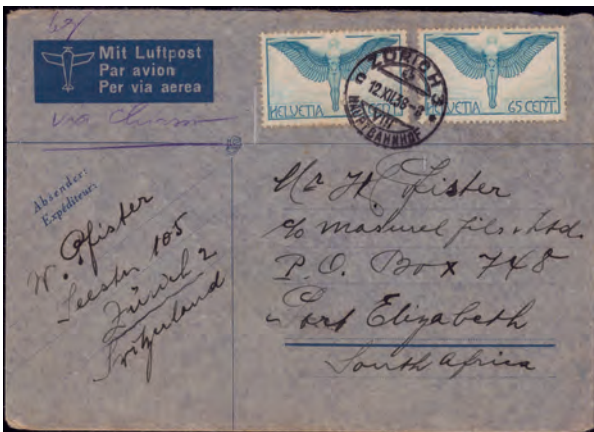 Mit Luftpost
Par avion
Per via aerea
via Chiasso
HELVETIA
HELVETIA 65 CENT.
ZÜRICH 3
12.XII.38-8
VIII
HAUPTBAHNHOF
Absender:
Expéditeur:
W. Pfister
Seestr 105
Zürich 2
Switzerland
Mr H. Pfister
c/o Masurel fils Ltd.
P.O. Box 748
Port Elizabeth
South Africa